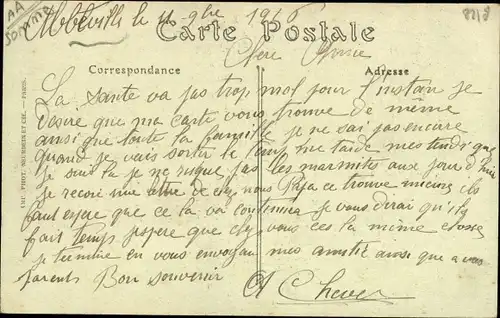 AA
Somme
Abbeville le 11 9bre 1916
Carte Postale
Chère Amie
Correspondance
Adresse
La santé va pas trop mal pour l'instan je
desire que ma carte vous trouve de même
ainsi que toute la famille je ne sai pas encore
quand je vais sortir le temp me tarde mes tendi que
je sui la je ne risque pas les marmite aux jour d'hui
je recoi une de chez nous Papa ce trouve mieux ils
faut que ce la va continuer je vous dirai qu'ily
fait temp j'espere que chez vous ces la même chose
je termine en vous envoyan mes amitié ainsi que a vos
parents Bon souvenir
Chever
IMP. PHOT. NEURDEIN ET CIE. — PARIS.